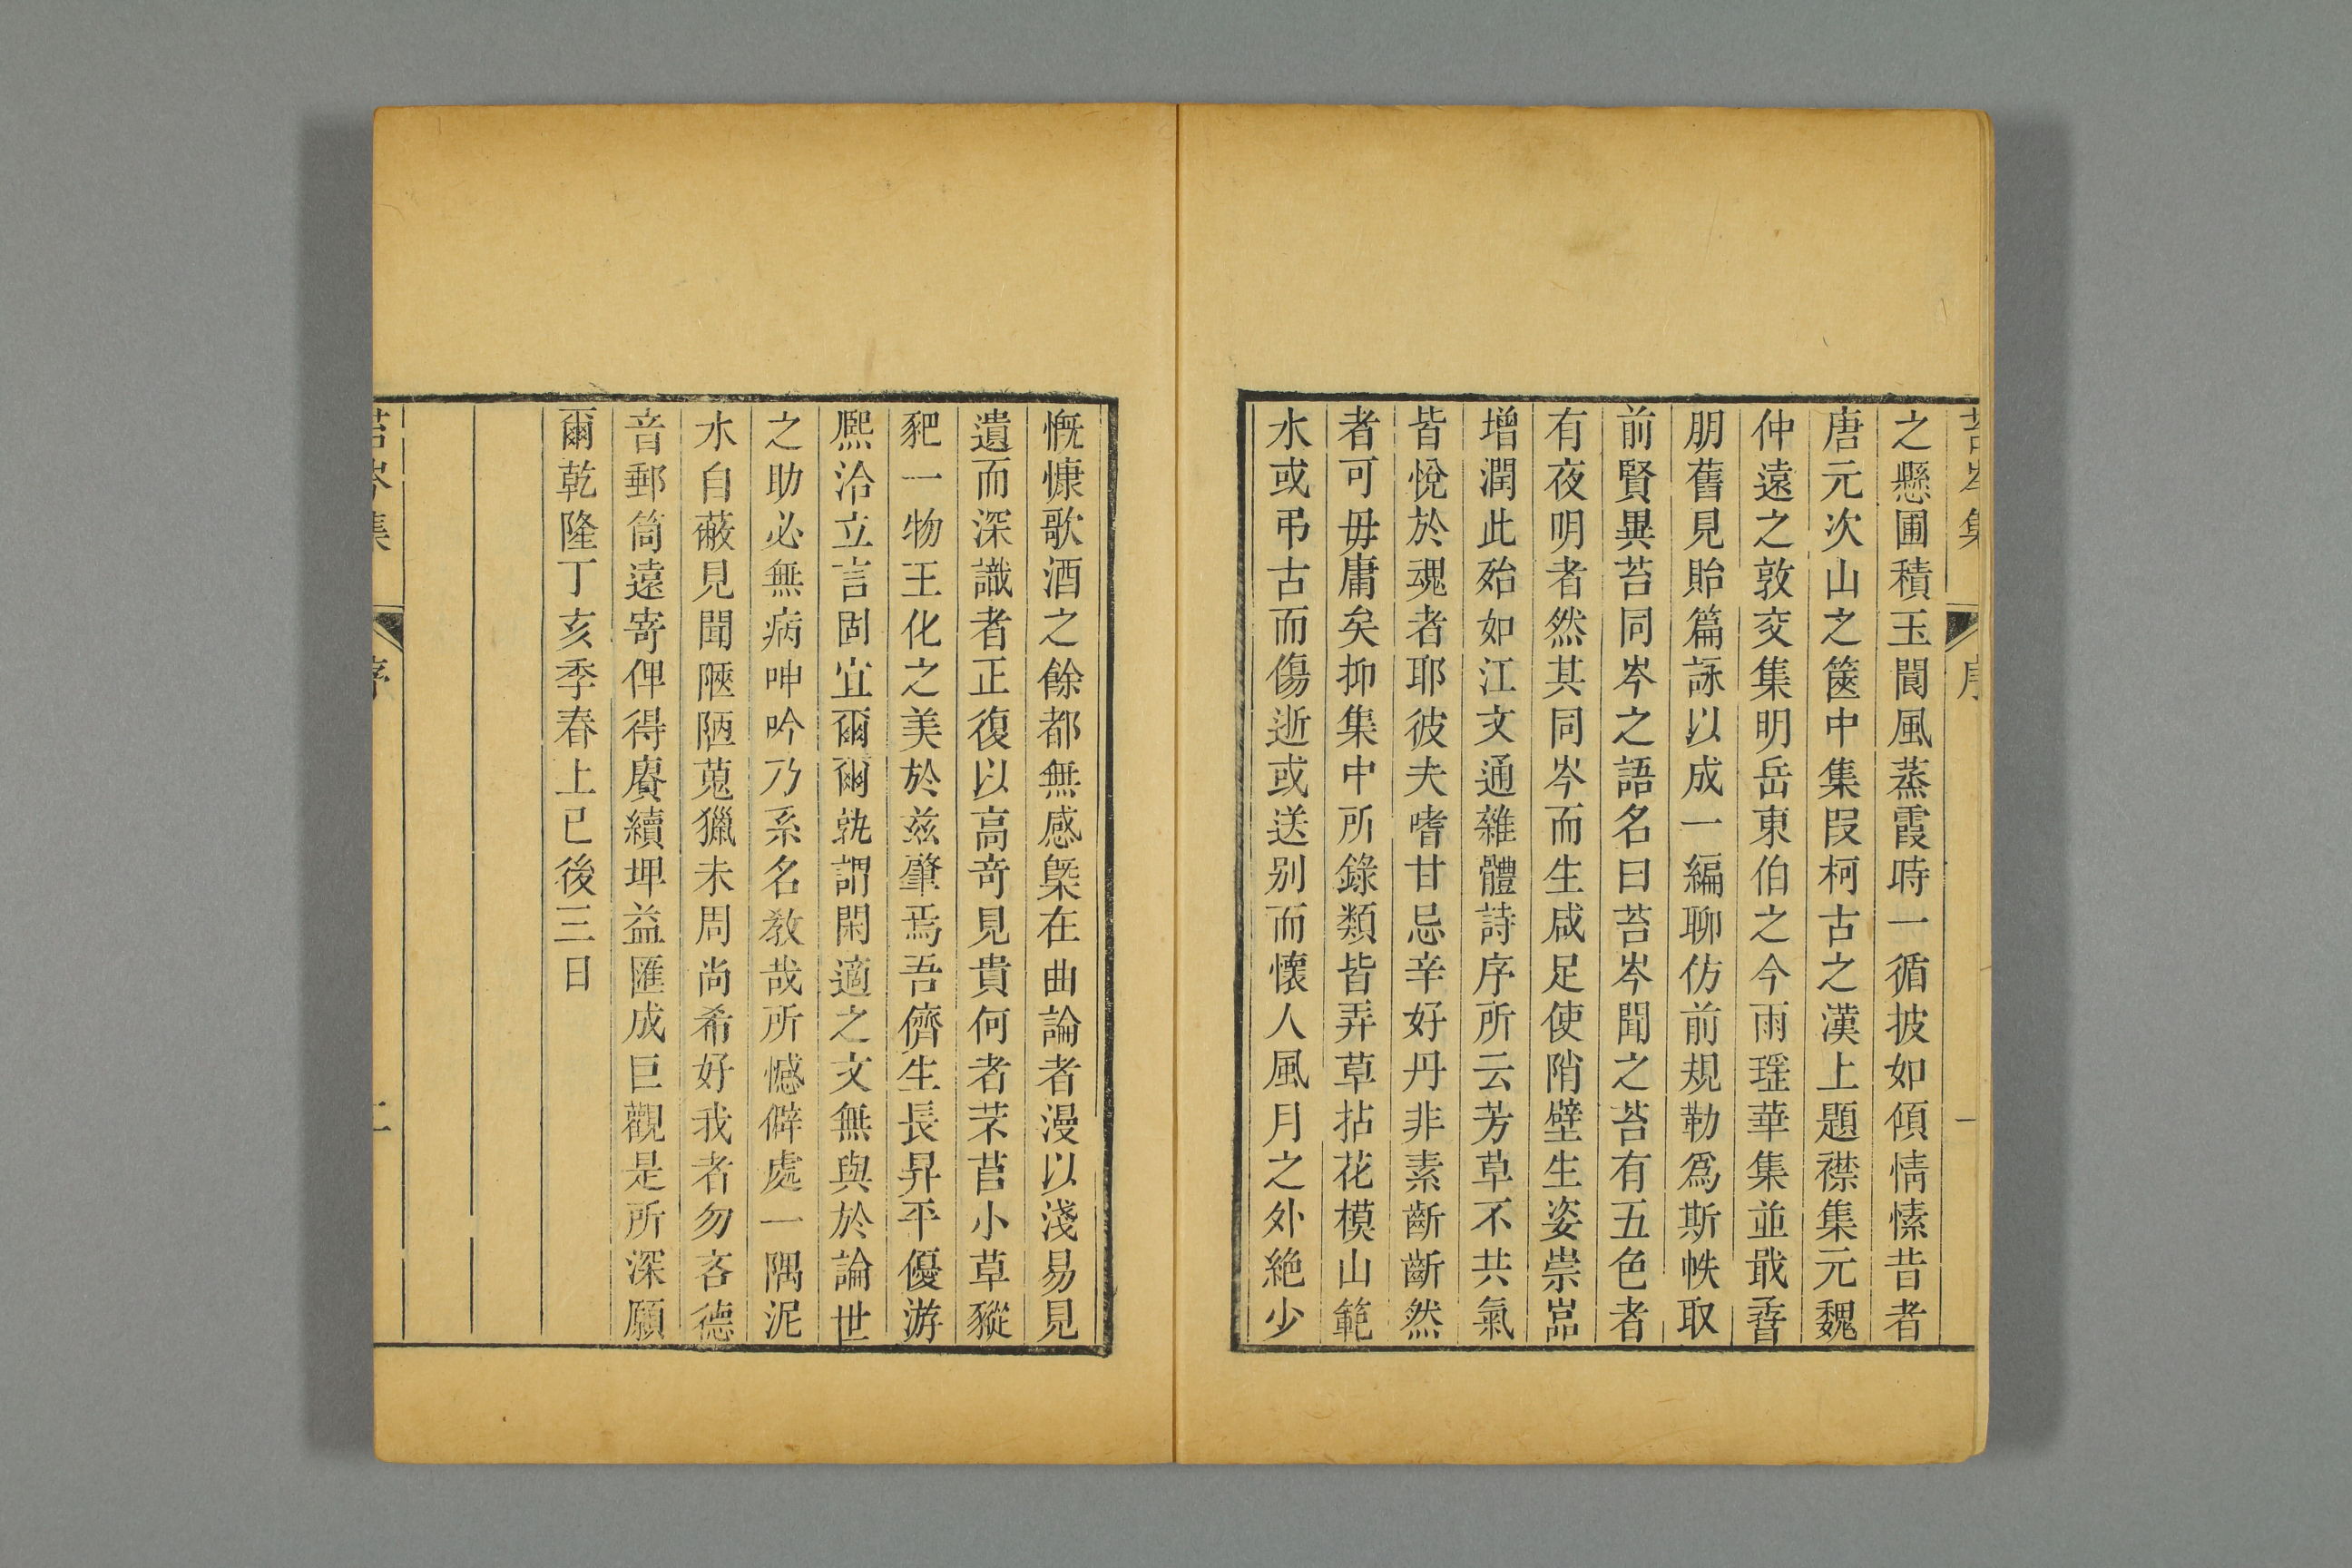 苔岑集 序 一
之懸圃積玉閬風蒸霞時一循披如傾情愫昔者
唐元次山之篋中集段柯古之漢上題襟集元魏
仲遠之敦交集明岳東伯之今雨瑶華集並戢孴
朋舊見貽篇詠以成一編聊仿前規勒爲斯帙取
前賢異苔同岑之語名曰苔岑聞之苔有五色者
有夜明者然其同岑而生咸足使陗壁生姿崇嵓
增潤此殆如江文通雜體詩序所云芳草不共氣
皆悅於魂者耶彼夫嗜甘忌辛好丹非素齗齗然
者可毋庸矣抑集中所錄類皆弄草拈花模山範
水或弔古而傷逝或送别而懷人風月之外絶少
慨慷歌酒之餘都無感槩在曲論者漫以淺易見
遺而深識者正復以高竒見貴何者芣苢小草豵
豝一物王化之美於兹肇焉吾儕生長昇平優游
熈洽立言固宜爾爾孰謂閑適之文無與於論世
之助必無病呻吟乃系名教哉所憾僻處一隅泥
水自蔽見聞陿陋蒐獵未周尚希好我者勿吝德
音郵筒遠寄俾得賡續埤益匯成巨觀是所深願
爾乾隆丁亥季春上巳後三日
苔岑集 序 二